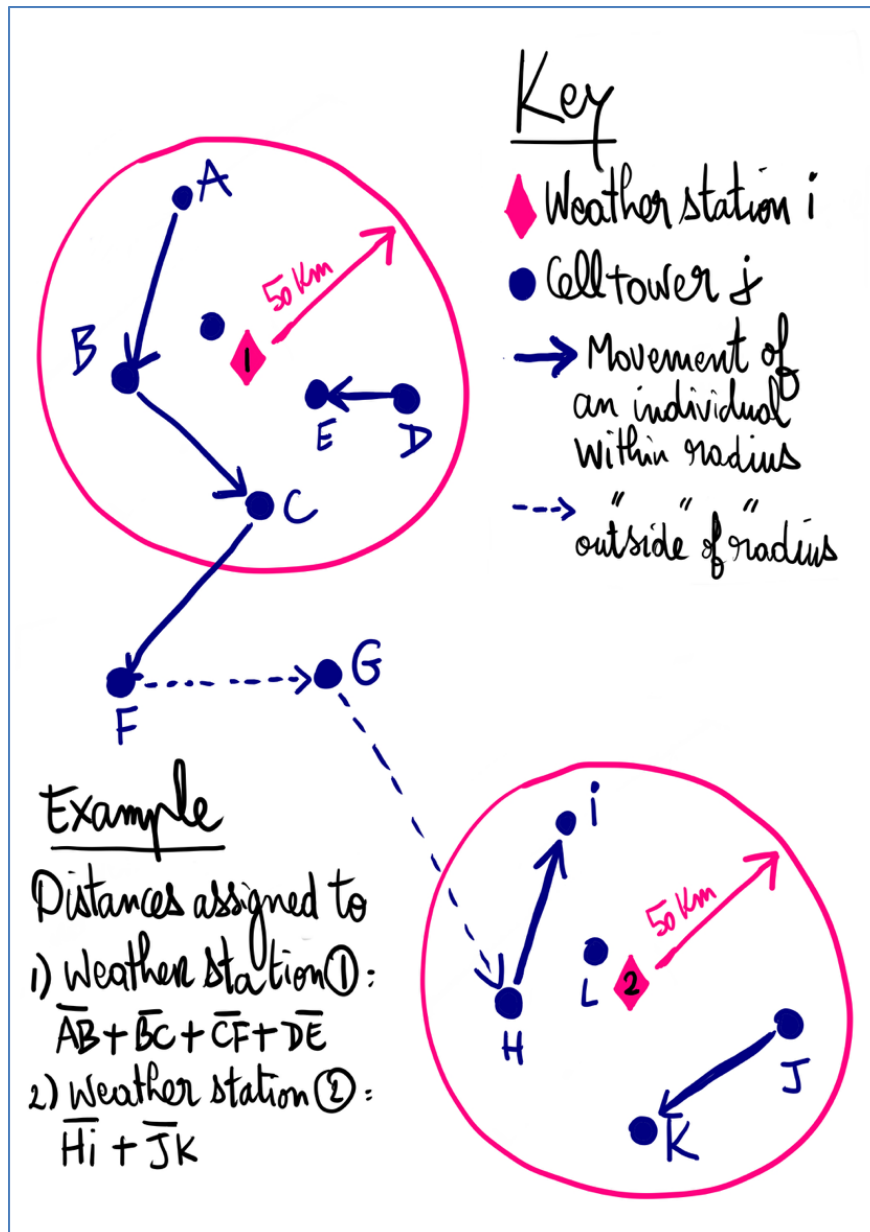 Key
Weather station i
Cell tower j
Movement of
an individual
within radius
" " "
outside of radius
A
B
50 Km
1
E
D
C
F
G
Example
Distances assigned to
1) Weather station ①:
A̅B̅ + B̅C̅ + C̅F̅ + D̅E̅
2) Weather station ②:
H̅i̅ + J̅K̅
i
50 Km
L
2
H
J
K